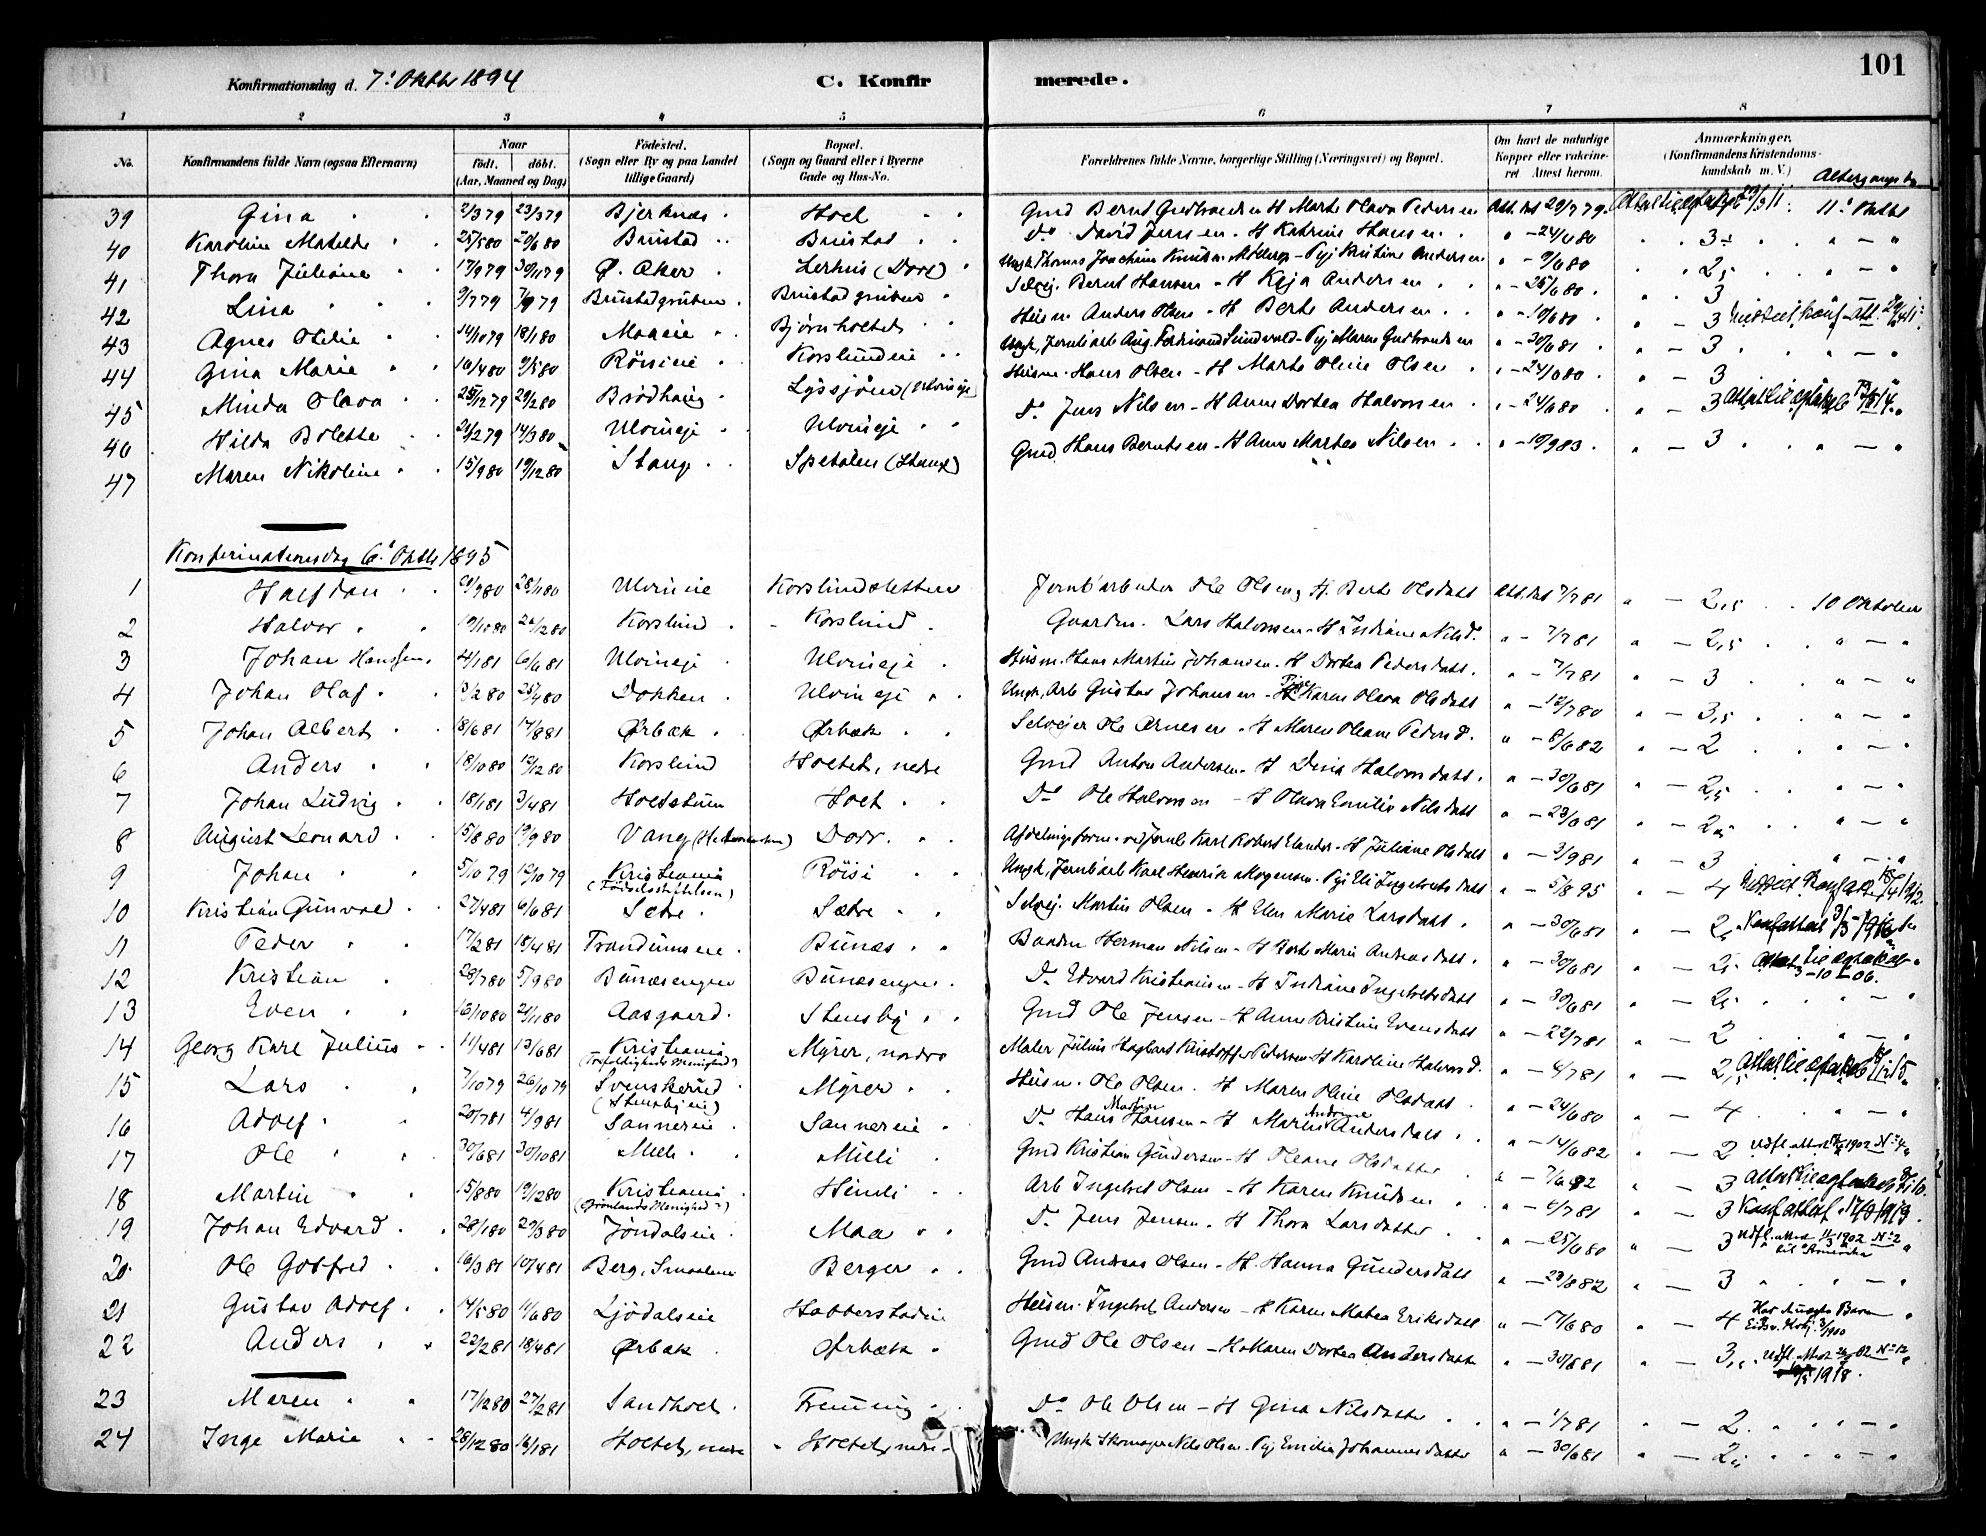 101
Konfirmationsdag d. 7: Oktbr 1894 C. Konfir merede.
1 2 3 4 5 6 7 8
No. Konfirmandens fulde Navn (ogsaa Efternavn) Naar født. døbt. (Aar, Maaned og Dag) Fødested. (Sogn eller By og paa Landet tillige Gaard) Bopæl. (Sogn og Gaard eller i Byerne Gade og Hus-No. Forældrenes fulde Navne, borgerlige Stilling (Næringsvei) og Bopæl. Om havt de naturlige Kopper eller vakcineret. Attest herom. Anmærkninger. (Konfirmandens Kristendomskundskab m. V.)
39 Gina 2/3 79 23/3 79 Bjerknæs Hoel Gmd Bernt Gudbrandsen H Marte Olava Pedersen Att. dat 29/7 79 11: Oktbr
40 Karoline Matilde 25/5 80 20/6 80 Brustad Brustad Do David Jensen H Katrine Hansen " — 24/6 80
41 Thora Juliane 17/9 79 30/11 79 Ø. Aker Lerhus (Dorr) Ungk. Thomas Joachim Knudsen - Pij Kristine Andersen " — 9/6 80
42 Lina 9/7 79 7/9 79 Brustadgruben Brustadgruben Selvej. Bernt Hansen - H Kaja Andersen " — 25/6 80 3
43 Agnes Otilie 14/10 79 18/1 80 Maaeie Bjørnholtet Husm Anders Olsen - H Berte Andersen " — 10/6 80 3
44 Gina Marie 16/4 80 9/5 80 Röisieie Korslundeie Ungk. Jernb.arb Aug. Ferdinand Sundvald - Pij Maren Gudbrandsen " — 30/6 81 3
45 Minda Olava 28/12 79 29/2 80 Brödhaug Lyssjøen Husm. Hans Olsen - H Marte Oline Olsen " — 24/6 80 3
46 Hilda Bolette 21/2 79 14/3 80 Ulvineje Ulvineje Do Jens Nilsen - H Anne Dortea Halvorsen " — 24/6 80 3
47 Maren Nikoline 15/9 80 19/12 80 Stange Spetalen (Stange) Gmd Hans Berntsen - H Anne Martea Nilsen " — 19/9 83 3
Konfirmationsdag 6: Oktbr 1895
1 Halfdan 20/9 80 28/11 80 Ulvineie Korslundsletten Jernb.arbeider Ole Olsen og H. Berte Olsdatt Att. dat 7/7 81 " — 2,5 10 Oktober
2 Halvor 19/10 80 26/12 80 Korslund Korslund Gaardm. Lars Halvorsen - H Indiane Nilsd. " — 7/7 81 " — 2,5
3 Johan Hansen 4/1 81 6/6 81 Ulvineje Ulvineje Husm. Hans Martin Johansen - H Dortea Pedersdatt. " — 7/7 81 " — 3
4 Johan Olaf 13/2 80 25/4 80 Dokken Ulvineje Ungk. Arb Gustav Johansen - Pige Karen Olava Olsdatt " — 12/7 80 " — 3,5
5 Johan Albert 18/6 81 17/8 81 Ørbæk Ørbæk Selveier Ole Arnesen - H Maren Oleane Pedersd. " — 8/6 82 " — 2
6 Anders 18/10 80 12/12 80 Korslund Holtet, nedre Gmd Anton Andersen - H Dina Halvorsdatt. " — 30/6 81 " — 2,5
7 Johan Ludvig 18/1 81 3/4 81 Holtstuen Holt Do Ole Halvorsen - H Olava Emilie Nilsdatt " — 23/6 81 " — 2,5
8 August Leonard 15/8 80 19/9 80 Vang (Hedemarken) Dorr Afdelingsform. ved Jernb Karl Robert Elander - H Juliane Olsdatt " — 3/9 81 " — 3
9 Johan 5/10 79 12/10 79 Kristiania (Fødselsstiftelsen) Röisi Ungk. Jernb.arb Karl Henrik Mogensen. Pij Eli Ingebretsdatt " — 5/8 95 " — 4
10 Kristian Gunvald 27/4 81 6/6 81 Sætre Sætre Selvej. Martin Olsen - H Elen Marie Larsdatt. " — 30/6 81 " — 2,5
11 Peder 17/2 81 18/4 81 Trandumseie Bunæs Baadm Herman Nilsen - H Berte Marie Andreasdatt. " — 30/6 81 " — 2,5 3-10-06.
12 Kristian 28/7 80 5/9 80 Bunæsengen Bunæsengen Do Edvard Kristiansen - H Indiane Ingebretsdatt " — 30/6 81 " — 2,5
13 Even 16/10 80 21/11 80 Aasgaard Stensby Gmd Ole Jensen - H Anne Kristine Evensdatt " — 22/7 81 " — 2
14 Georg Karl Julius 11/4 81 13/6 81 Kristiania (Trefoldigheds Menighed) Myrer, nordre Maler Julius Hagbart Kristoffer Pedersen - H Karoline Halvorsd. " — 4/7 81 " — 2,5
15 Lars 7/10 79 26/10 79 Svenskerud (Stensbyeie) Myrer Husm. Ole Olsen. H Maren Oline Olsdatt " — 24/6 80 " — 4
16 Adolf 20/7 81 4/9 81 Sannereie Sannereie Do Hans Madsen Hansen - H Maren Andrine Andersdatt " — 14/6 82 " — 2 Udfl. attest 1902 No 4
17 Ole 30/6 81 30/10 81 Milli Milli Gmd Kristian Gundersen - H Oleane Olsdatter " — 7/6 82 " — 3
18 Martin 15/8 80 19/12 80 Kristiania (Grønlands Menighed) Himli Arb Ingebret Olsen - H Karen Knudsen " — 4/7 81 " — 3 Konf.attest 1913.
19 Johan Edvard 28/1 80 29/3 80 Jøndalseie Maa Do Jens Jensen - H Thora Larsdatter " — 25/6 80 " — 3 Udfl. attest 11/3 1902 No 2 til Amerika
20 Ole Gotfred 16/3 81 10/4 81 Berg, Smaalene Berger Gmd Andreas Olsen - H. Hanna Gundersdatt " — 23/8 82 " — 3
21 Gustav Adolf 14/5 80 11/6 80 Ljødalseie Habberstadeie Husm. Ingebret Andersen - H Karen Matea Eriksdatt " — 17/6 80 " — 4
22 Anders 22/2 81 18/4 81 Ørbæk Ørbæk Gmd Ole Olsen - H Maren Dortea Andersdatter " — 30/6 81 " — 3,5 1918.
23 Maren 17/12 80 27/2 81 Sandholt Fremming Do Ole Olsen - H Gina Nilsdatter " — 1/7 81 " — 2
24 Inga Marie 28/12 80 16/1 81 Holtet, nedre Holtet, nedre Ungk Skomager Nils Olsen. Pij Emilie Johannesdatter " — 30/6 81 " — 2,5